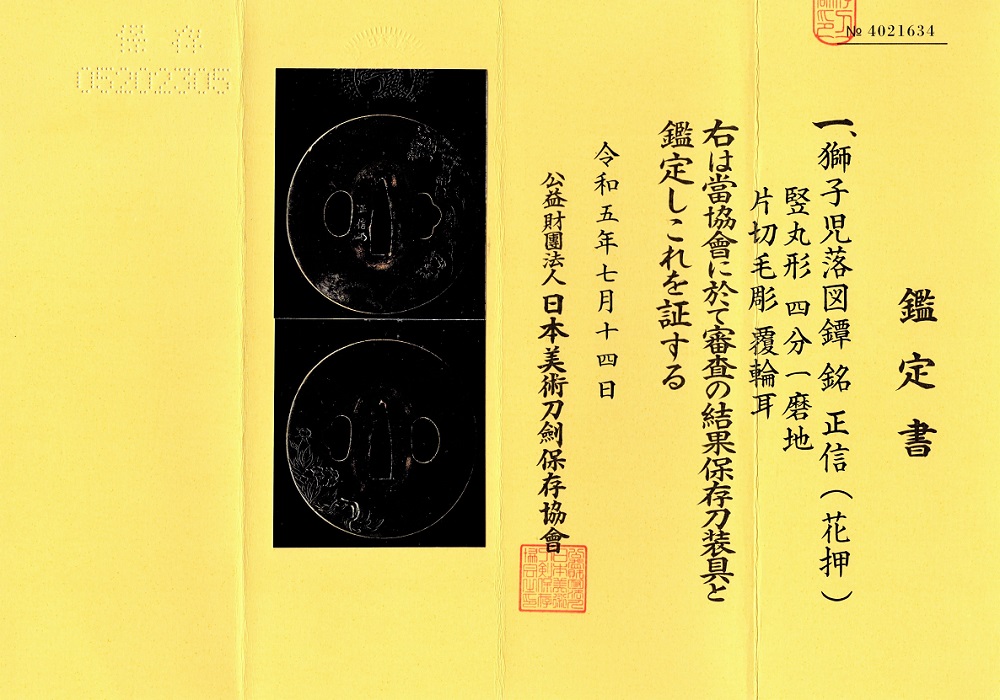 № 4021634
鑑定書
一、獅子児落図鐔 銘 正信(花押)
竪丸形 四分一磨地
片切毛彫 覆輪耳
右は當協會に於て審査の結果保存刀装具と
鑑定しこれを証する
令和五年七月十四日
公益財團法人 日本美術刀劍保存協會
保存
05202305